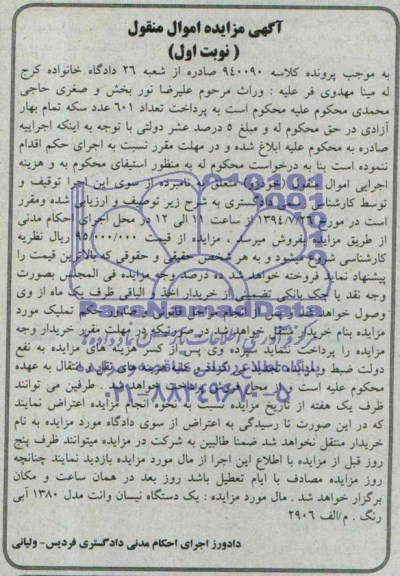 آگهی مزایده اموال منقول
( نوبت اول)
به موجب پرونده کلاسه ۹۴۰۰۹۰ صادره از شعبه ۲۶ دادگاه خانواده کرج
له مینا مهدوی فر علیه : وراث مرحوم علیرضا نور بخش و صغری حاجی
محمدی محکوم علیه محکوم است به پرداخت تعداد ۶۰۱ عدد سکه تمام بهار
آزادی در حق محکوم له و مبلغ ۵ درصد عشر دولتی با توجه به اینکه اجراییه
صادره به محکوم علیه ابلاغ شده و در مهلت مقرر نسبت به اجرای حکم اقدام
ننموده است بنا به درخواست محکوم له به منظور استیفای محکوم به و هزینه
اجرایی اموال منقول (خودرو) متعلق به نامبرده از سوی این اجرا توقیف و
توسط کارشناس رسمی دادگستری به شرح زیر توصیف و ارزیابی شده ومقرر
است در مورخ ۱۳۹۴/۷/۲۵ از ساعت ۱۱ الی ۱۲ در محل اجرای احکام مدنی
از طریق مزایده بفروش میرسد . مزایده از قیمت ۹۵/۰۰۰/۰۰۰ ریال نظریه
کارشناسی شروع میشود و به هر شخص حقیقی و حقوقی که بالاترین قیمت را
پیشنهاد نماید فروخته خواهد شد ده درصد وجه مزایده فی المجلس بصورت
وجه نقد یا چک بانکی تضمینی از خریدار اخذ و الباقی ظرف یک ماه از وی
وصول خواهد شد تملیک مورد
مزایده بنام خریدار منتقل خواهد شد در صورتیکه در مهلت مقرر خریدار وجه
مزایده را پرداخت ننماید سپرده وی پس از کسر هزینه های مزایده به نفع
دولت ضبط و مزایده تجدید می گردد کلیه هزینه های نقل و انتقال به عهده
محکوم علیه است و از محل فروش پرداخت خواهد شد . طرفین می توانند
ظرف یک هفته از تاریخ مزایده نسبت به نحوه انجام مزایده اعتراض نمایند
که در این صورت تا رسیدگی به اعتراض از سوی دادگاه مورد مزایده به نام
خریدار منتقل نخواهد شد ضمنا طالبین به شرکت در مزایده میتوانند ظرف پنج
روز قبل از مزایده با اطلاع این اجرا از مال مورد مزایده بازدید نمایند چنانچه
روز مزایده مصادف با ایام تعطیل باشد روز بعد در همان ساعت و مکان
برگزار خواهد شد . مال مورد مزایده : یک دستگاه نیسان وانت مدل ۱۳۸۰ آبی
رنگ . م/الف ۲۹۰۶
دادورز اجرای احکام مدنی دادگستری فردیس- ولیانی
ParsNamadData
پایگاه اطلاع رسانی مناقصه و مزایده
۰۲۱-۸۸۳۴۹۶۷۰-۵